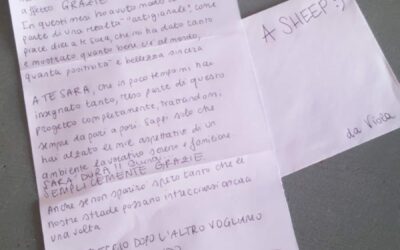 affetto GRAZIE
In questi mesi ho avuto modo di
parte di una realtà "artigianale", come
piace dire a te Sara, che mi ha dato tanto
e mostrato quanto bene c'è al mondo,
quanta positività e bellezza sincera
A TE SARA, che in poco tempo mi hai
insegnato tanto, reso parte di questo
progetto completamente, trattandomi
sempre da pari a pari. Sappi solo che
hai alzato le mie aspettative di un
ambiente lavorativo sereno e familiare.
SARÀ DURA!!
SEMPLICEMENTE GRAZIE.
Anche se non sparirò spero tanto che le
nostre strade possano intrecciarsi ancora
una volta
DOPO L'ALTRO VOGLIAMO
A SHEEP :)
da Viola